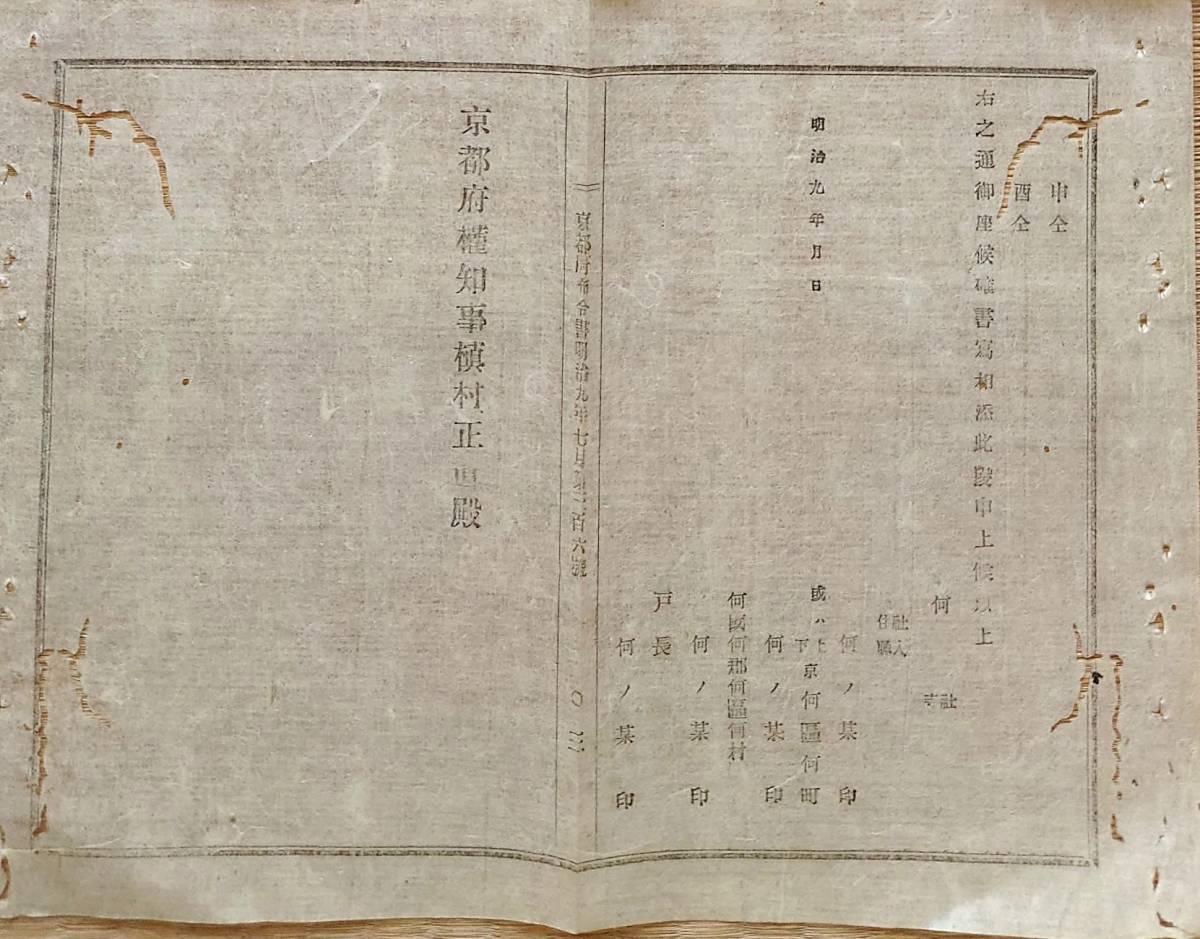 申仝
酉仝
右之通御座候確書寫相添此段申上候以上
何 社寺
社人
住職
何ノ某 印
明治九年月日
或ハ上下京何區何町
何ノ某 印
何國何郡何區何村
何ノ某 印
戸長
何ノ某 印
京都府布令書明治九年七月第二百六號
京都府權知事槇村正直殿